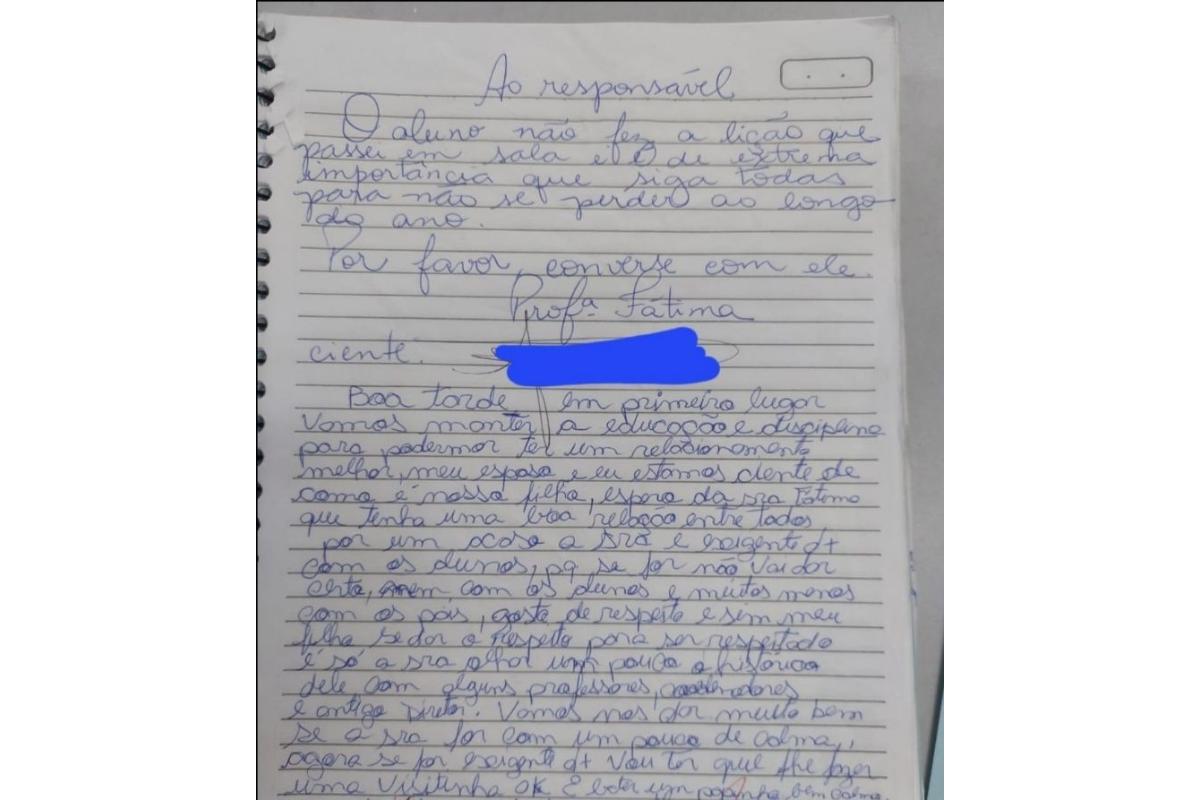 Ao responsável
O aluno não fez a lição que
passei em sala e é de extrema
importância que siga todas
para não se perder ao longo
do ano.
Por favor, converse com ele.
Profª. Fátima
ciente:
Boa tarde em primeiro lugar
Vamos manter a educação e disciplina
para podermor ter um relacionamento
melhor, meu esposo e eu estamos ciente de
como é nosso filho, espero da sra Fátima
que tenha uma boa relação entre todos,
por um acaso a sra é exigente d+
com os alunos, pq se for não vai dar
certo, nem com os alunos e muitos menos
com os pais, gosto de respeito e sim meu
filho se dar o respeito para ser respeitado
é só a sra olhar um pouco o histórico
dele com alguns professores,
e antigo Diretor. Vamos nos dar muito bem
se a sra for com um pouco de calma,
agora se for exigente d+ vou ter que lhe fazer
uma Visitinha OK E bater um papinho bem calmo.